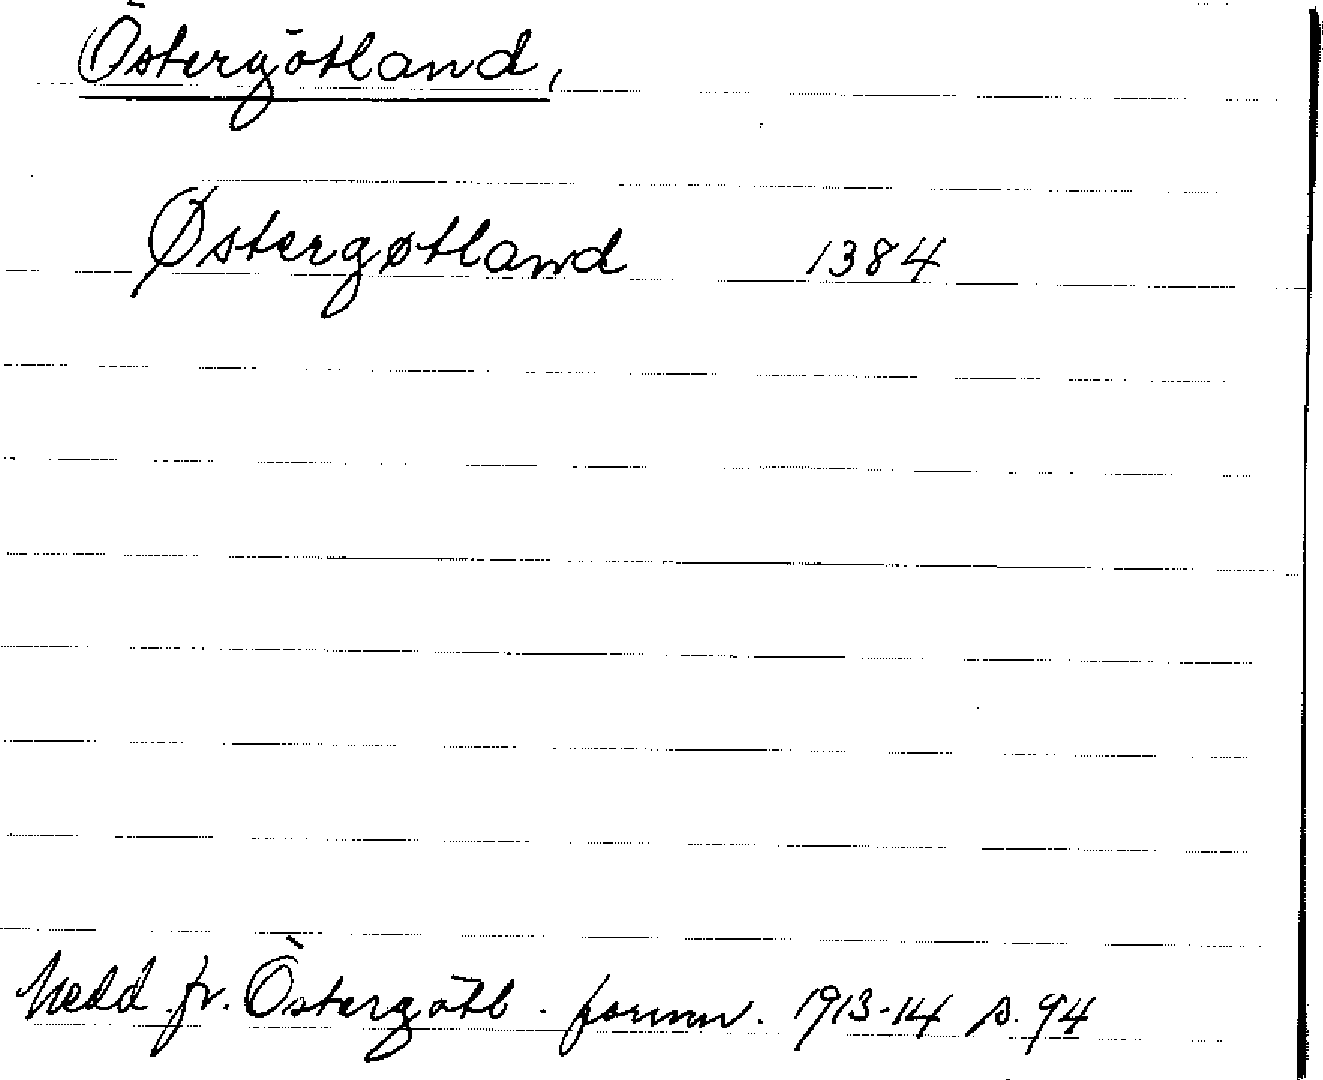 Östergötland,
Østergøtland 1384
Medd fr. Östergötl. fornm. 1913-14 s. 94